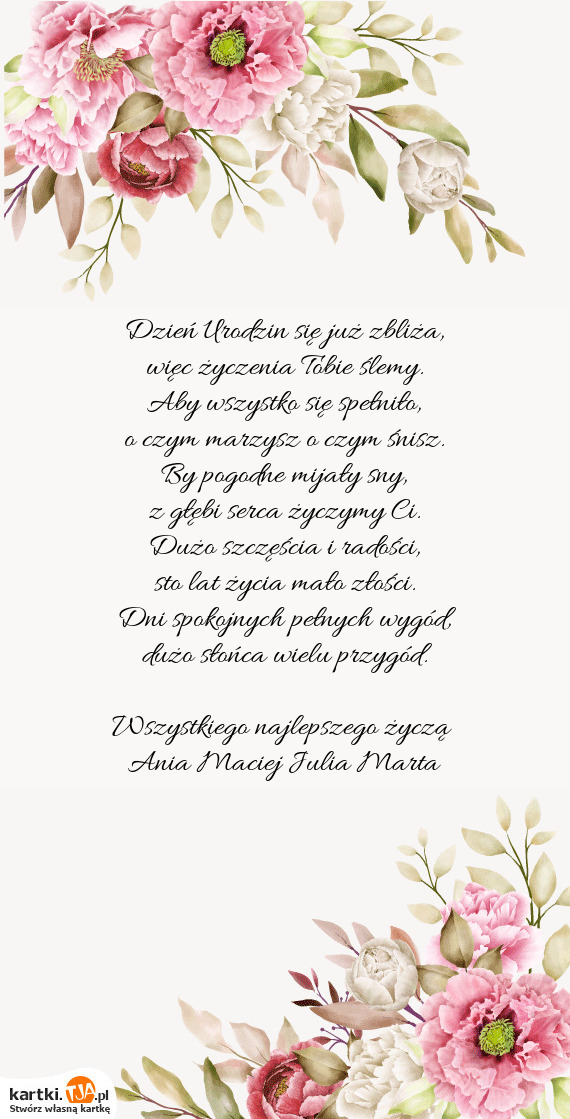 Dzień Urodzin się już zbliża,
więc życzenia Tobie ślemy.
Aby wszystko się spełniło,
o czym marzysz o czym śnisz.
By pogodne mijały sny,
z głębi serca życzymy Ci.
Dużo szczęścia i radości,
sto lat życia mało złości.
Dni spokojnych pełnych wygód,
dużo słońca wielu przygód.
Wszystkiego najlepszego życzą
Ania Maciej Julia Marta
kartki.TJA.pl
Stwórz własną kartkę